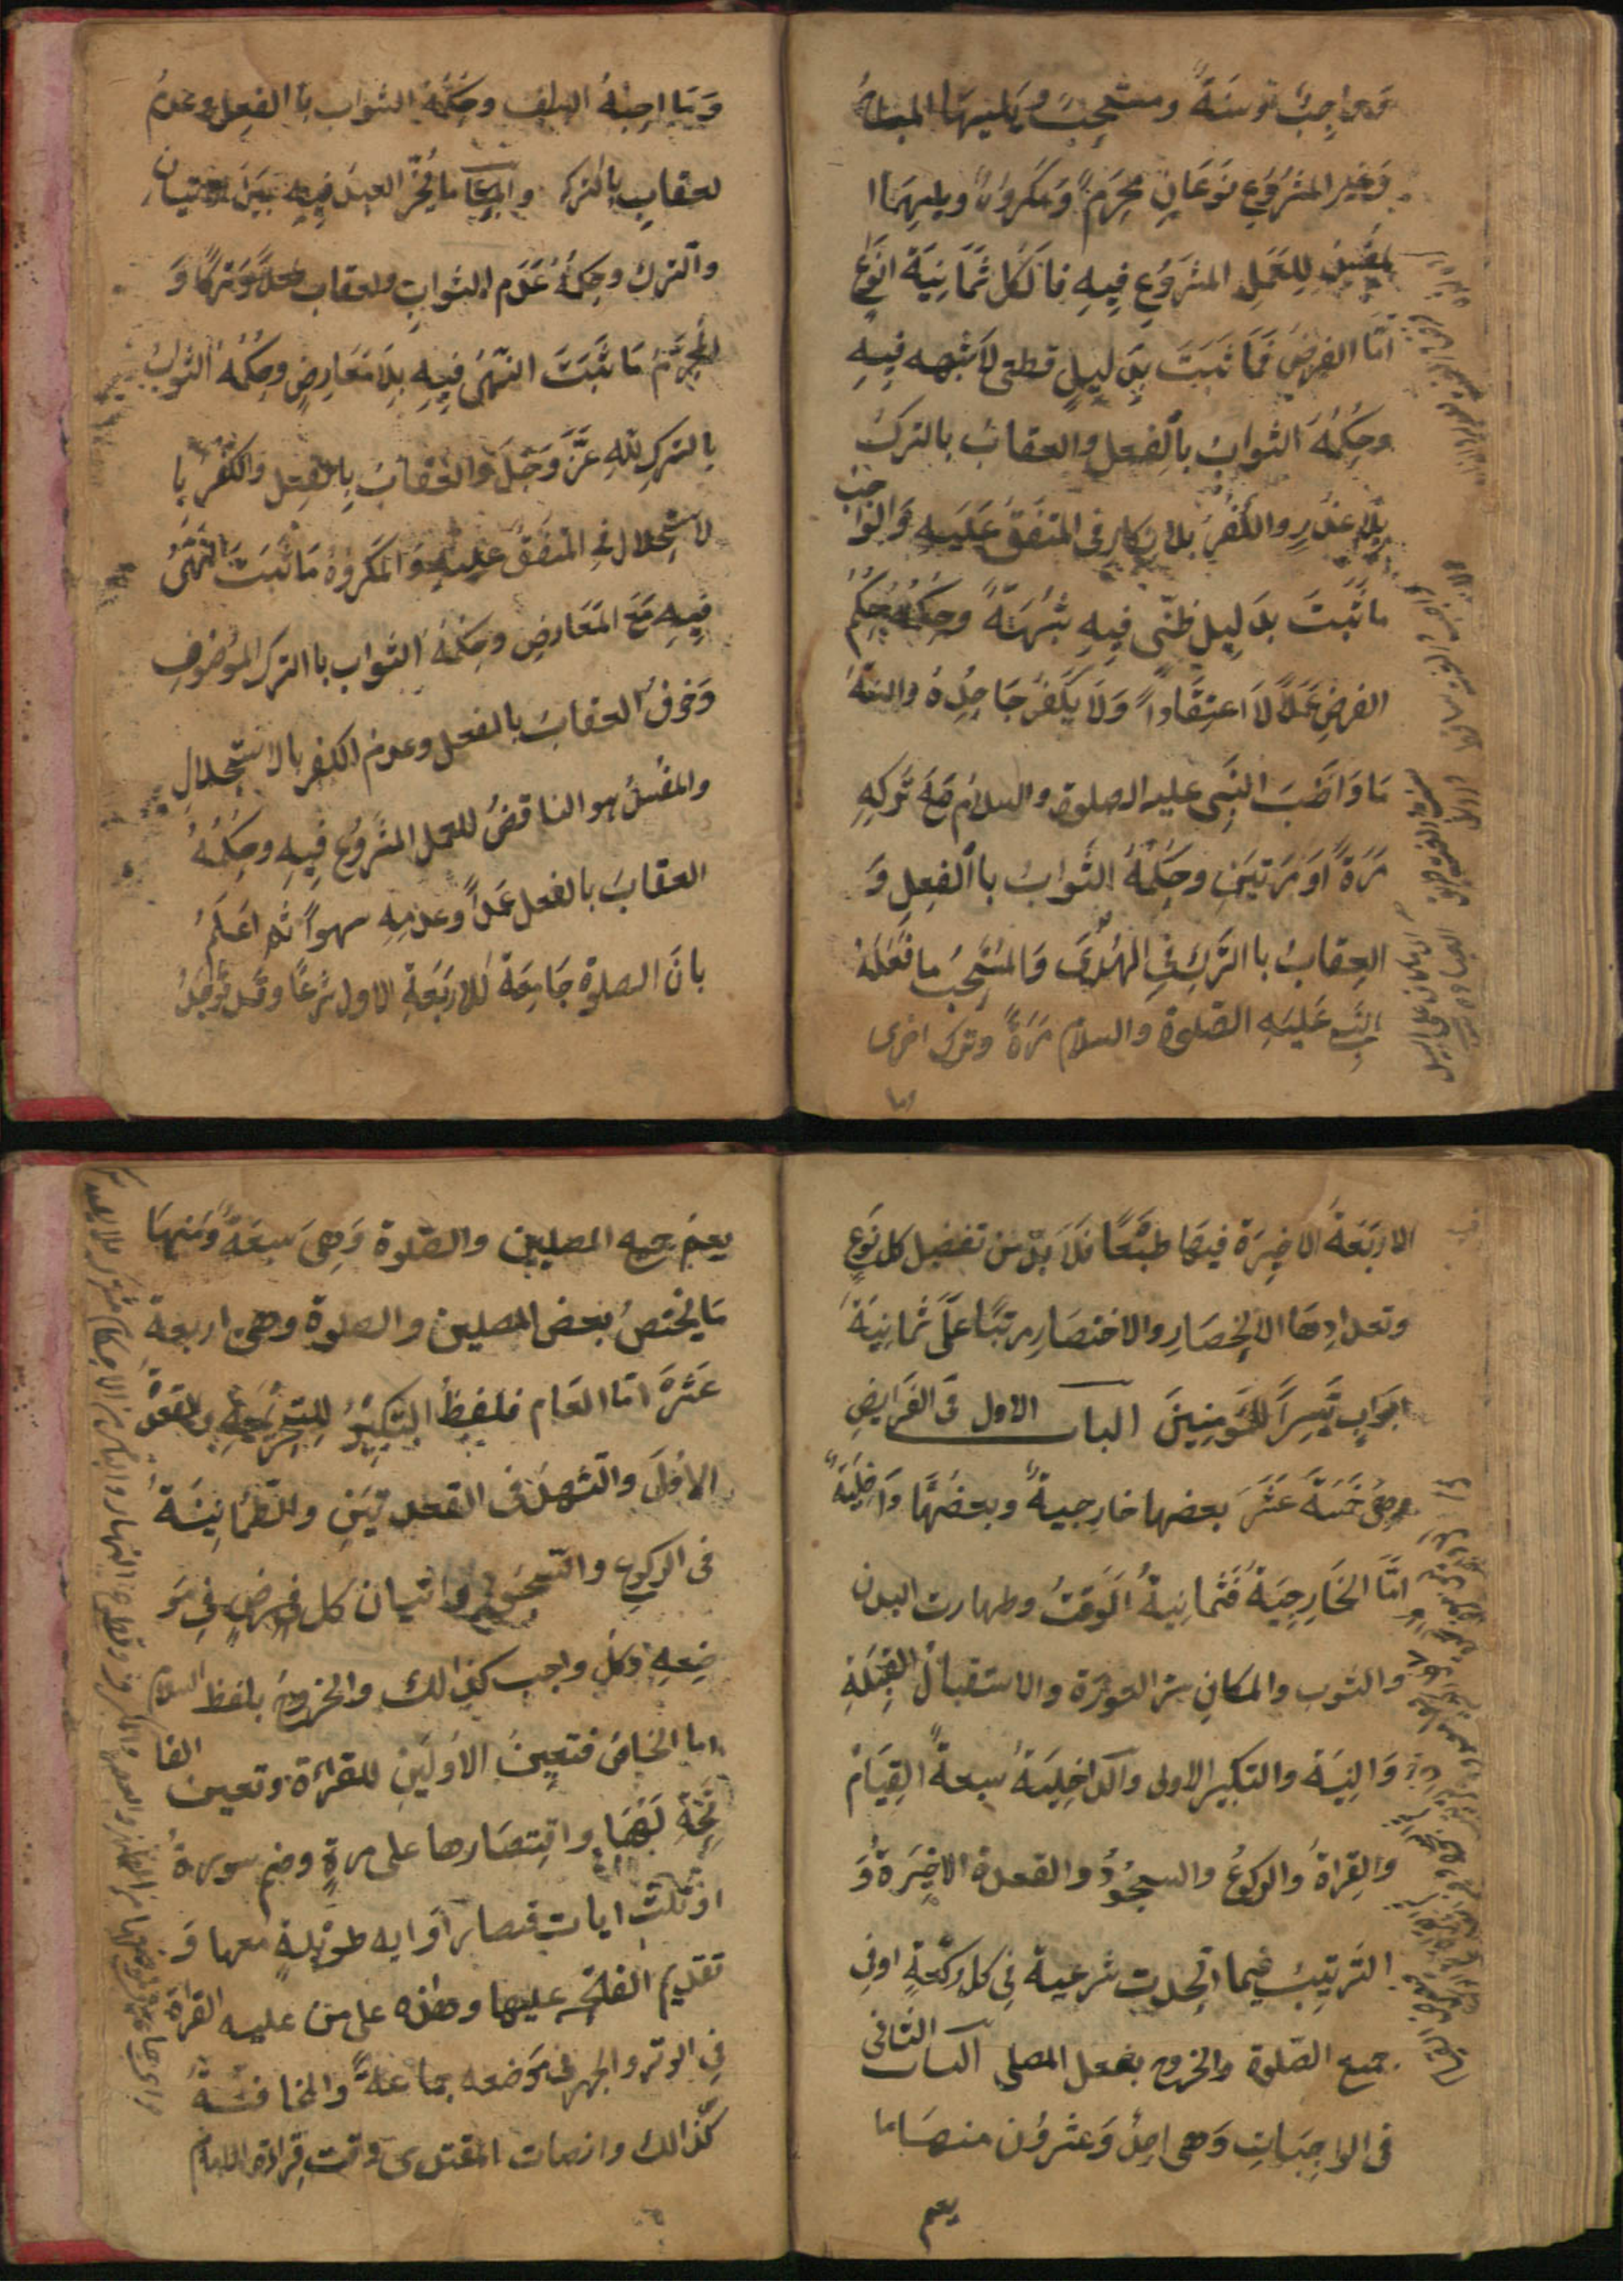 وواجب وسنة ومستحب ويليها المباح
وغير المشروع نوعان محرم ومكروه ويليهما ا
لمفسد للعمل المشروع فيه فالكل ثمانية انوع
اما الفرض فما ثبت بدليل قطعى لا شبهه فيه
وحكمه الثواب بالفعل والعقاب بالترك
بلا عذر والكفر بلانكار فى المتفق عليه والواجب
ما ثبت بدليل ظنى فيه شبهة وحكمه حكم
الفرض عملا لا اعتقادا ولا يكفر جاحده والسنة
ما واظب النبى عليه الصلوة والسلام مع تركه
مرة او مرتين وحكمه الثواب باالفعل و
العقاب باالترك فى الهدى والمستحب ما فعله
النبى عليه الصلوة والسلام مرة وترك اخرى
اما
وما احبه السلف وحكمه الثواب باالفعل وعدم
لعقاب بالترك والمباح ما يخير العبد فيه بين الاتيان
والترك وحكمه عدم الثواب ولعقاب فعلا وتركا و
لمحرم ما ثبت النهى فيه بلا معارض وحكمه الثواب
بالترك لله عز وجل والعقاب بالفعل والكفر با
لاستحلال فى المتفق عليه والمكروه ما ثبت النهى
فيه مع المعارض وحكمه الثواب باالترك الموضوف
وخوف العقاب بالفعل وعدم الكفر بالاستحلال
والمفسد هو الناقض للعمل المشروع فيه وحكمه
العقاب بالفعل عمدا وعدمه سهوا ثم اعلم
بان الصلوة جامعة للاربعة الاول شرعا وقد توجد
الاربعة الاخيرة فيها طبعا فلا بد من تفضيل كل نوع
وتعدادها الانحصار والاختصار مرتبا على ثمانية
ابواب تيسرا للمومنين الباب الاول فى الفرايض
وهى خمسة عشر بعضها خارجية وبعضها داخلية
اما الخارجية فثمانية الوقت وطهارت البدن
والثوب والمكان ستر العورة والاستقبال القبلة
والنية والتكبير الاولى والداخلية سبعة القيام
والقراة والركوع والسجود والقعدة الاخيرة و
الترتيب فيما اتحدت شرعية فى كل ركعة اوفى
جميع الصلوة والخروج بفعل المصلى الباب الثانى
فى الواجبات وهى احد وعشرون منها ما
يعم
يعم جميع المصليين والصلوة وهى سبعة ومنها
ما يختص بعض المصلين والصلوة وهى اربعة
عشرة اما العام فلفظ التكبير للتحريمة والقعدة
الاولى والتشهد فى القعدتين والطمانينة
فى الركوع والسجود واتيان كل فرض فى مو
ضعه وكل واجب كذالك والخروج بلفظ السلام
اما الخاص فتعين الاولين للقراءة وتعين الفا
تحة لها واقتصارها على مرة وضم سورة
او ثلث ايات قصار او ايه طويلة معها و
تقديم الفاتحه عليها وهذه على من عليه القراة
فى الوتر والجهر فى موضعه جماعة والمخافتة
كذالك وانصات المقتدى وقت قراة الامام